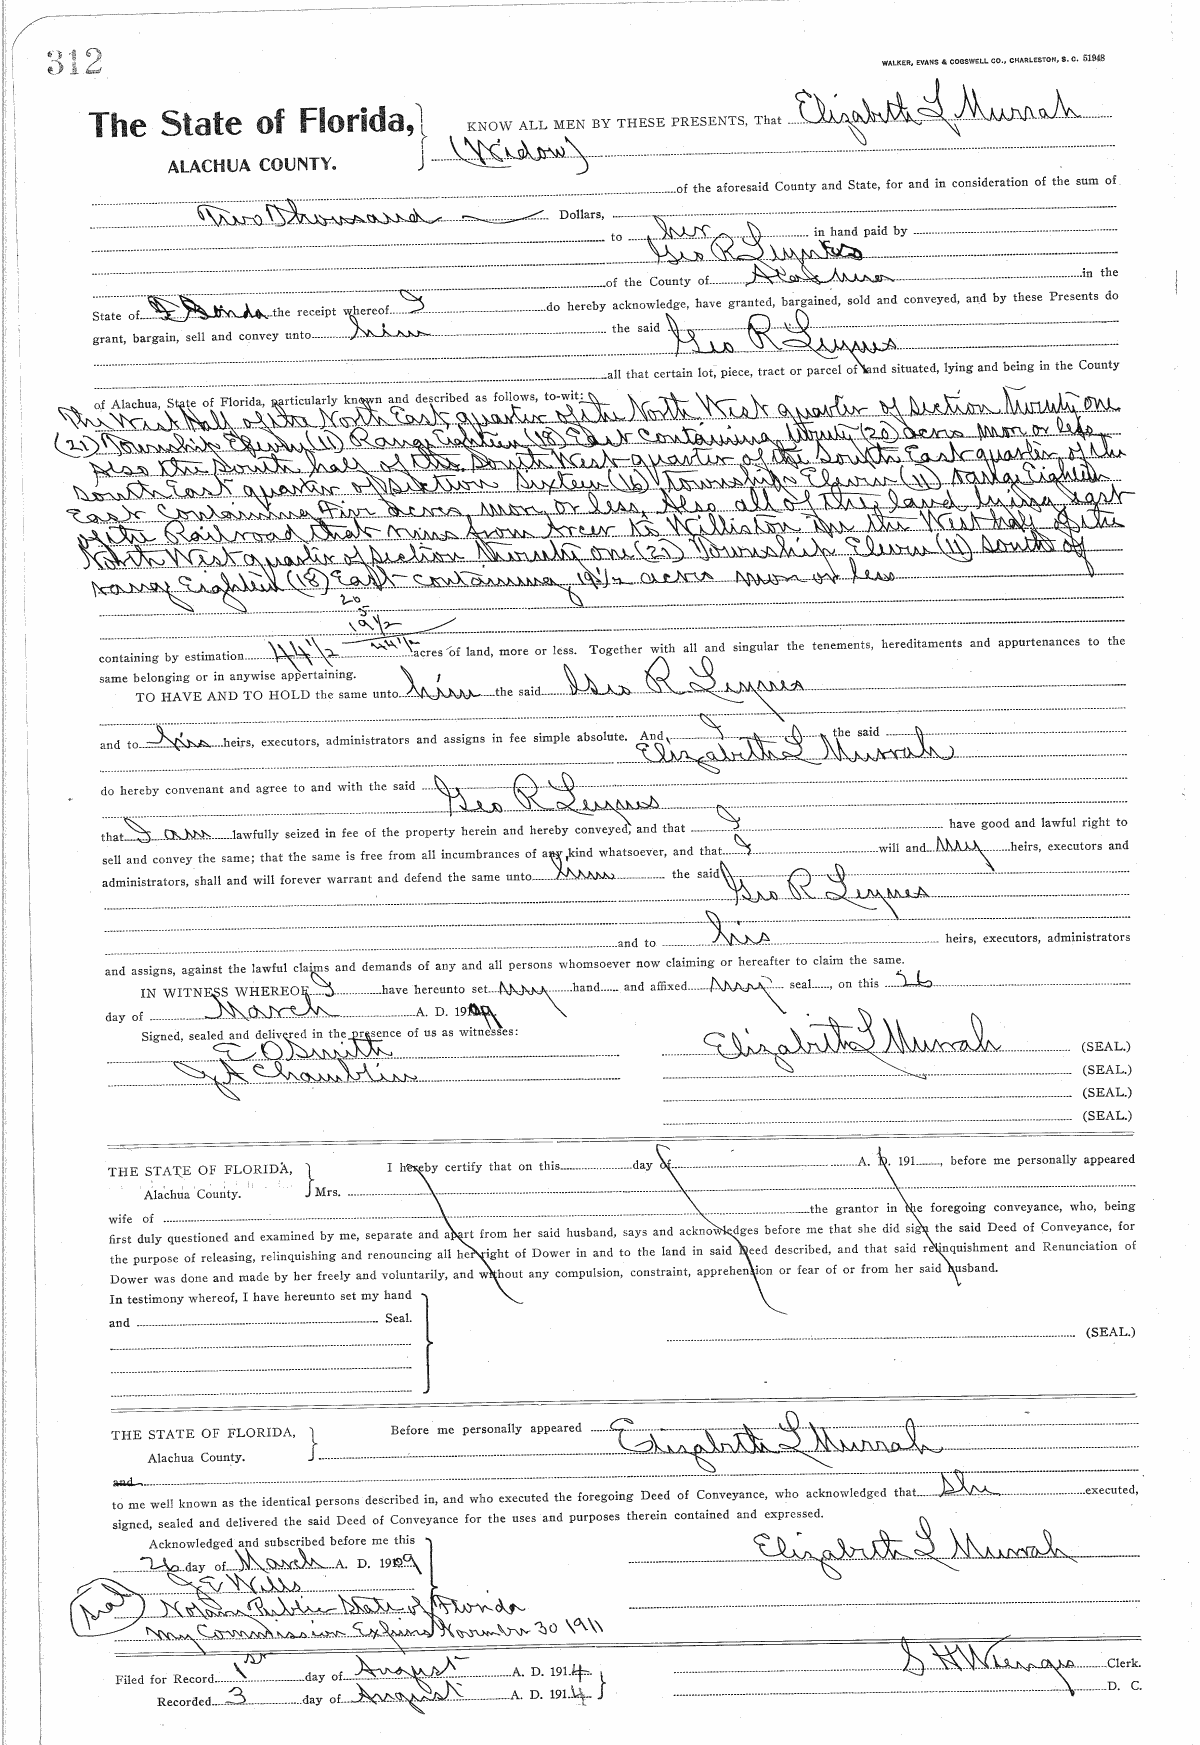 312
WALKER, EVANS & COGSWELL CO., CHARLESTON, S. C. 51948
The State of Florida, KNOW ALL MEN BY THESE PRESENTS, That Elizabeth L Murrah
ALACHUA COUNTY. (Widow)
of the aforesaid County and State, for and in consideration of the sum of
Two Thousand Dollars,
to her in hand paid by
Geo R
of the County of Alachua in the
State of Florida the receipt whereof I do hereby acknowledge, have granted, bargained, sold and conveyed, and by these Presents do
grant, bargain, sell and convey unto him the said Geo R Leynes
all that certain lot, piece, tract or parcel of land situated, lying and being in the County
of Alachua, State of Florida, particularly known and described as follows, to-wit:
The West Half of the North East quarter of the North West quarter of Section Twenty one
(21) Township Eleven (11) Range Eighteen (18) East containing twenty (20) acres mor or less
Also the South half of the South West quarter of the South East quarter of the
South East quarter of Section Sixteen (16) Township Eleven (11) Range Eighteen
East Containing Five acres mor or less, Also all of the land lying east
of the Railroad that runs from Archer to Williston in the West half of the
North West quarter of Section twenty one (21) Township Eleven (11) South of
range Eighteen (18) East containing 19½ acres mor or less
20
5
19 1/2
44 1/2
containing by estimation 44 1/2 acres of land, more or less. Together with all and singular the tenements, hereditaments and appurtenances to the
same belonging or in anywise appertaining.
TO HAVE AND TO HOLD the same unto him the said Geo R Leynes
and to his heirs, executors, administrators and assigns in fee simple absolute. And I the said
Elizabeth L Murrah
do hereby convenant and agree to and with the said Geo R Leynes
that I am lawfully seized in fee of the property herein and hereby conveyed, and that I have good and lawful right to
sell and convey the same; that the same is free from all incumbrances of any kind whatsoever, and that I will and my heirs, executors and
administrators, shall and will forever warrant and defend the same unto him the said Geo R Leynes
and to his heirs, executors, administrators
and assigns, against the lawful claims and demands of any and all persons whomsoever now claiming or hereafter to claim the same.
IN WITNESS WHEREOF I have hereunto set my hand and affixed my seal, on this 26
day of March A. D. 1909
Signed, sealed and delivered in the presence of us as witnesses:
E O Smith Elizabeth L Murrah (SEAL.)
J A Chamblin (SEAL.)
(SEAL.)
(SEAL.)
THE STATE OF FLORIDA, I hereby certify that on this day of A. D. 191 , before me personally appeared
Alachua County. Mrs.
wife of the grantor in the foregoing conveyance, who, being
first duly questioned and examined by me, separate and apart from her said husband, says and acknowledges before me that she did sign the said Deed of Conveyance, for
the purpose of releasing, relinquishing and renouncing all her right of Dower in and to the land in said Deed described, and that said relinquishment and Renunciation of
Dower was done and made by her freely and voluntarily, and without any compulsion, constraint, apprehension or fear of or from her said husband.
In testimony whereof, I have hereunto set my hand
and Seal.
(SEAL.)
THE STATE OF FLORIDA, Before me personally appeared Elizabeth L Murrah
Alachua County.
and
to me well known as the identical persons described in, and who executed the foregoing Deed of Conveyance, who acknowledged that she executed,
signed, sealed and delivered the said Deed of Conveyance for the uses and purposes therein contained and expressed.
Acknowledged and subscribed before me this
26 day of March A. D. 1909 Elizabeth L Murrah
J E Wills
Seal Notary Public State of Florida
My Commission Expires November 30 1911
Filed for Record 1st day of August A. D. 1914 S H Wienges Clerk.
Recorded 3 day of August A. D. 1914 D. C.